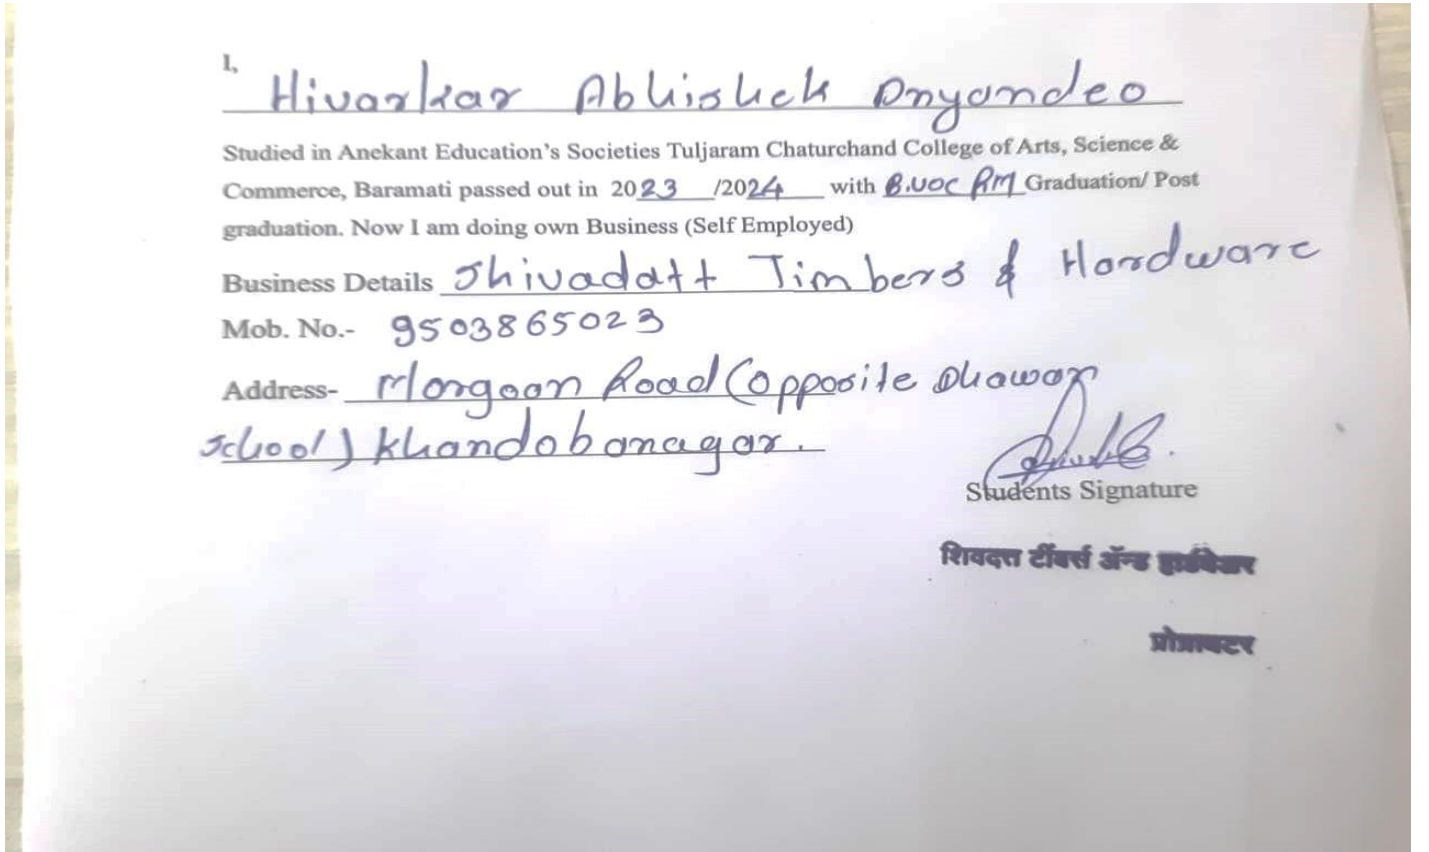 I,
Hivarkar Abhishek Dnyandeo
Studied in Anekant Education's Societies Tuljaram Chaturchand College of Arts, Science &
Commerce, Baramati passed out in 2023 /2024 with B.voc RM Graduation/ Post
graduation. Now I am doing own Business (Self Employed)
Business Details Shivadatt Timbers & Hardware
Mob. No.- 9503865023
Address- Morgaon Road (opposite Dhawan
school) Khandobanagar.
Students Signature
शिवदत्त टींबर्स ॲन्ड हार्डवेअर
प्रोप्रायटर